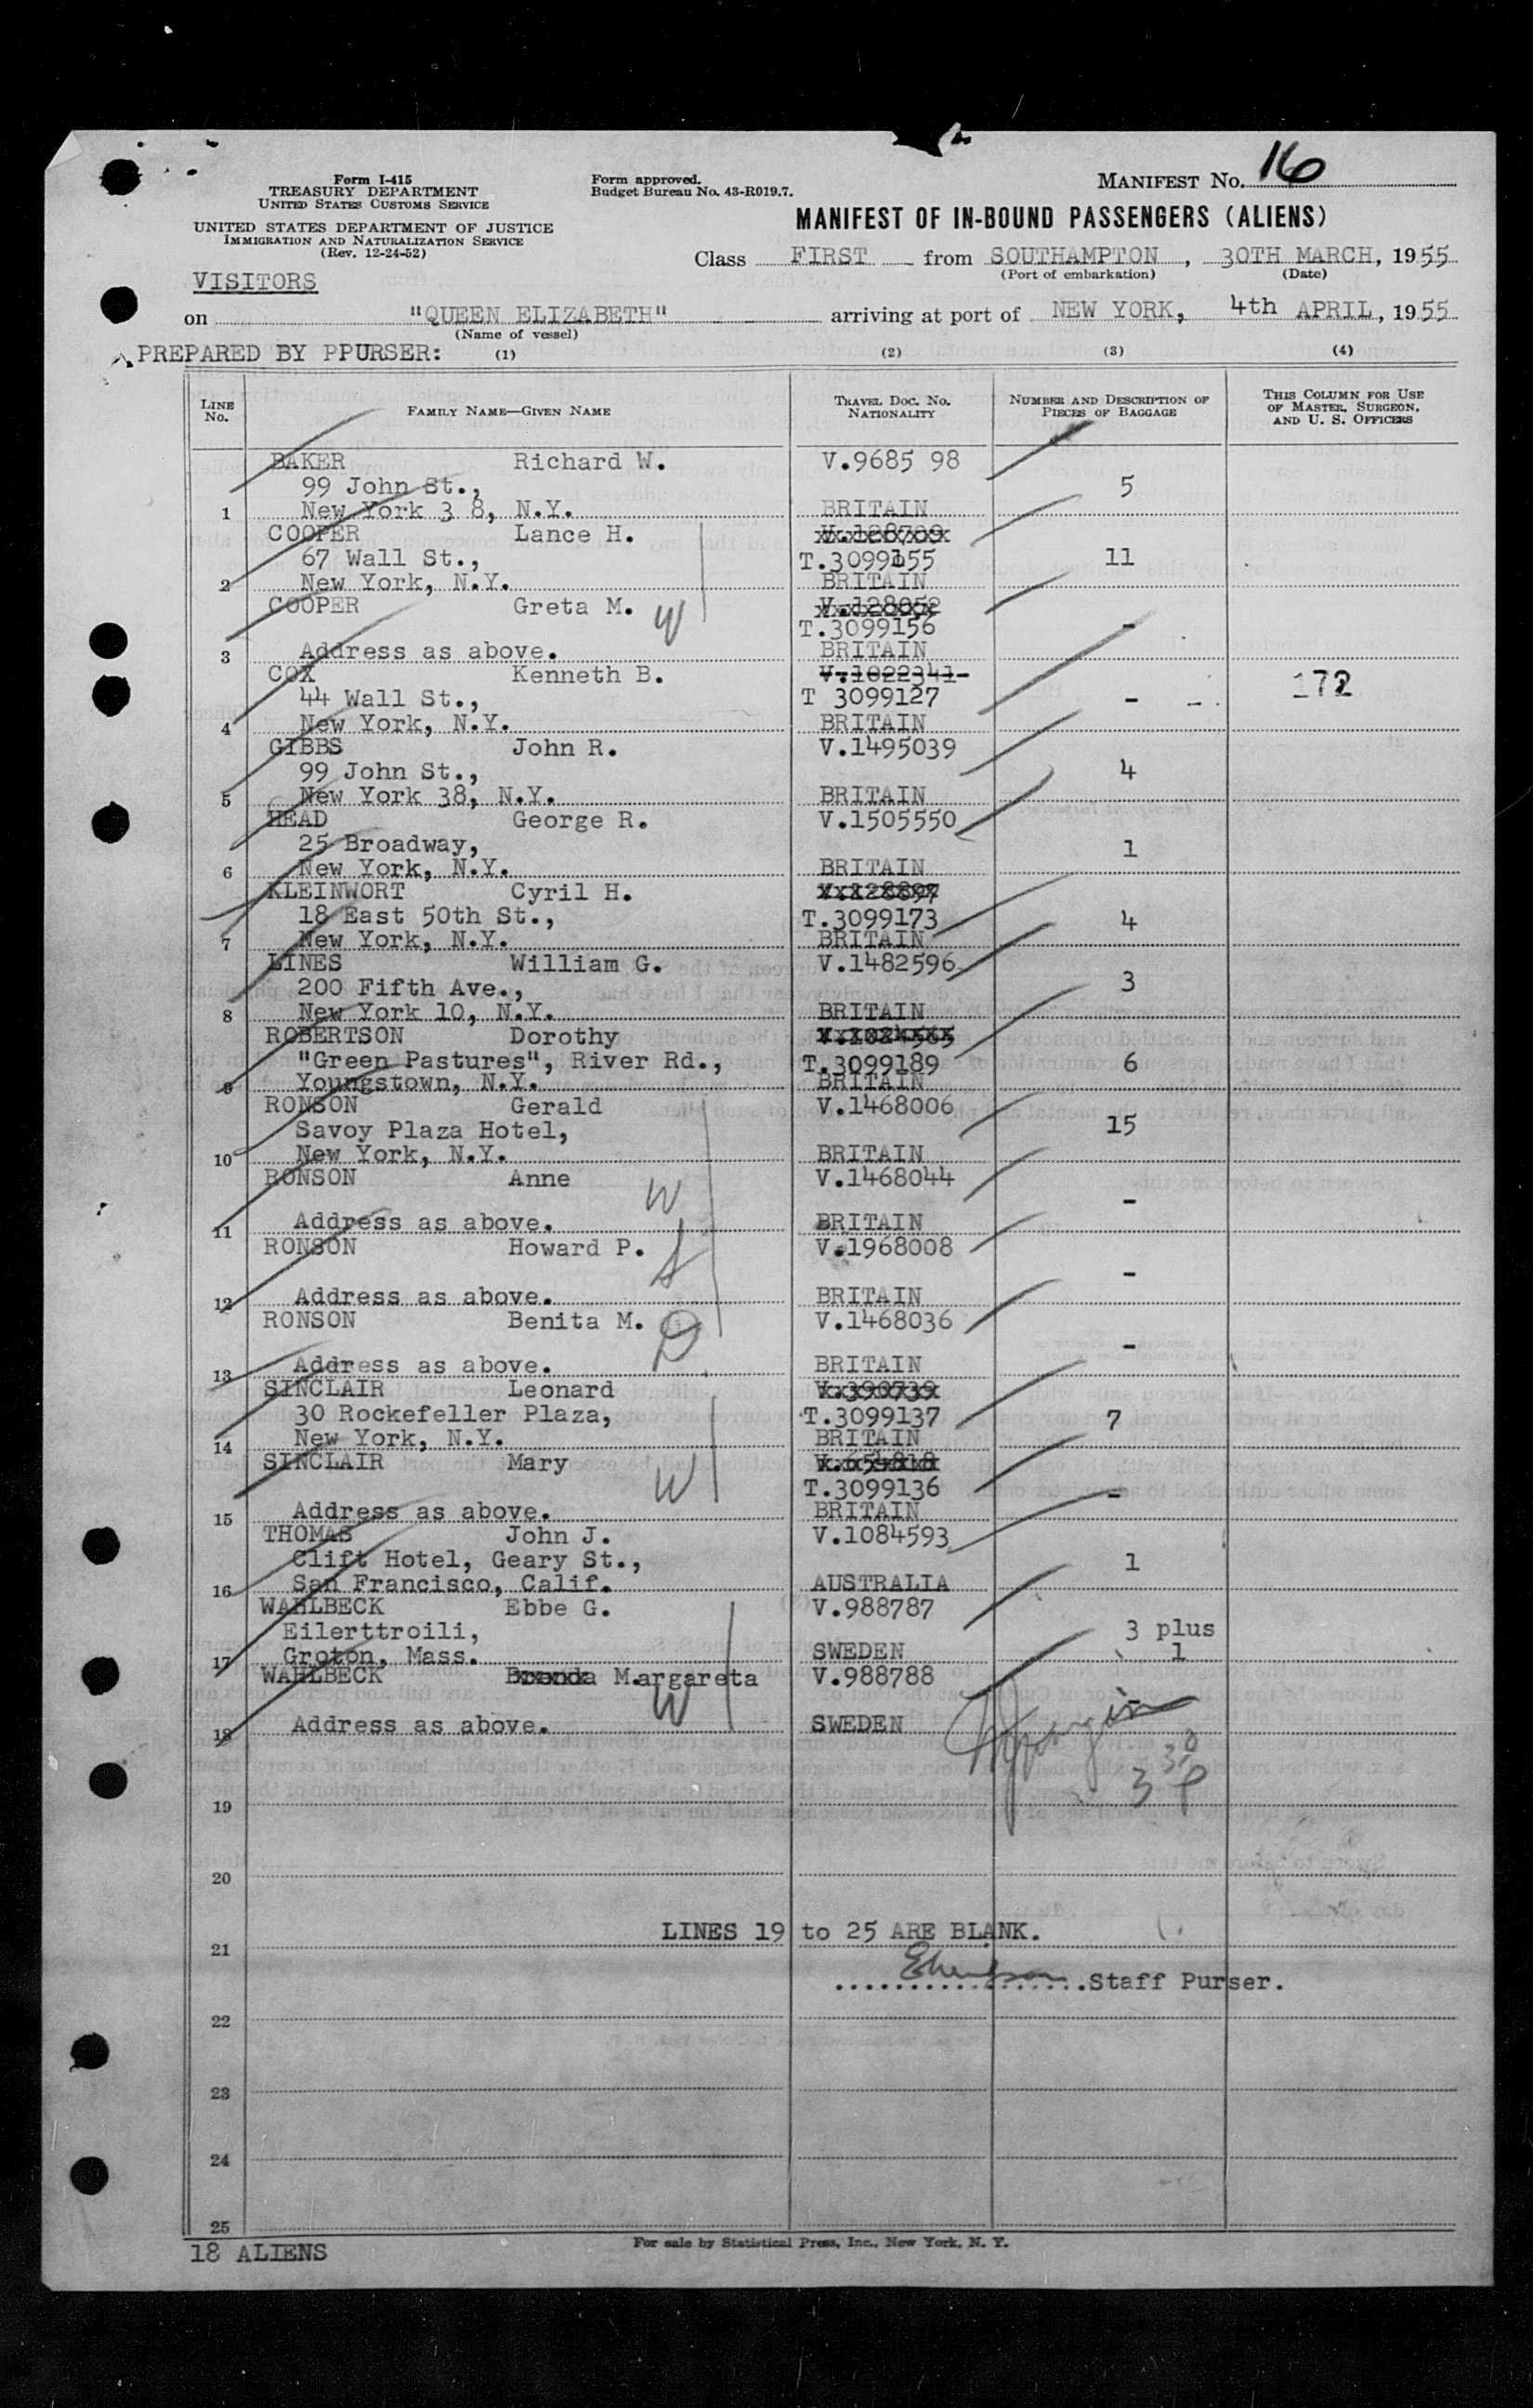 Form I-415
TREASURY DEPARTMENT
UNITED STATES CUSTOMS SERVICE
UNITED STATES DEPARTMENT OF JUSTICE
IMMIGRATION AND NATURALIZATION SERVICE
(Rev. 12-24-52)
Form approved.
Budget Bureau No. 43-R019.7.
MANIFEST No. 16
MANIFEST OF IN-BOUND PASSENGERS (ALIENS)
Class FIRST from SOUTHAMPTON, 30TH MARCH, 1955
(Port of embarkation) (Date)
VISITORS
on "QUEEN ELIZABETH" arriving at port of NEW YORK, 4th APRIL, 1955
(Name of vessel)
PREPARED BY PPURSER: (1) (2) (3) (4)
LINE No. FAMILY NAME—GIVEN NAME TRAVEL DOC. NO. NATIONALITY NUMBER AND DESCRIPTION OF PIECES OF BAGGAGE THIS COLUMN FOR USE OF MASTER, SURGEON, AND U. S. OFFICERS
BAKER Richard W. V.9685 98
99 John St., 5
1 New York 3 8, N.Y. BRITAIN
COOPER Lance H. V.128709
67 Wall St., T.3099155 11
2 New York, N.Y. BRITAIN
COOPER Greta M. V.128052
W T.3099156 -
3 Address as above. BRITAIN
COX Kenneth B. V.1022341
44 Wall St., T 3099127 - 172
4 New York, N.Y. BRITAIN
GIBBS John R. V.1495039
99 John St., 4
5 New York 38, N.Y. BRITAIN
HEAD George R. V.1505550
25 Broadway, 1
6 New York, N.Y. BRITAIN
KLEINWORT Cyril H. V.128897
18 East 50th St., T.3099173 4
7 New York, N.Y. BRITAIN
LINES William G. V.1482596
200 Fifth Ave., 3
8 New York 10, N.Y. BRITAIN
ROBERTSON Dorothy
"Green Pastures", River Rd., T.3099189 6
9 Youngstown, N.Y. BRITAIN
RONSON Gerald V.1468006
Savoy Plaza Hotel, 15
10 New York, N.Y. BRITAIN
RONSON Anne V.1468044
W -
11 Address as above. BRITAIN
RONSON Howard P. V.1968008
-
12 Address as above. BRITAIN
RONSON Benita M. D V.1468036
-
13 Address as above. BRITAIN
SINCLAIR Leonard V.390739
30 Rockefeller Plaza, T.3099137 7
14 New York, N.Y. BRITAIN
SINCLAIR Mary
W T.3099136 -
15 Address as above. BRITAIN
THOMAS John J. V.1084593
Clift Hotel, Geary St., 1
16 San Francisco, Calif. AUSTRALIA
WAHLBECK Ebbe G. V.988787
Eilerttroili, 3 plus
17 Groton, Mass. SWEDEN 1
WAHLBECK Brenda M.argareta V.988788
W
18 Address as above. SWEDEN
19
20
LINES 19 to 25 ARE BLANK.
21
Staff Purser.
22
23
24
25
18 ALIENS
For sale by Statistical Press, Inc., New York, N. Y.